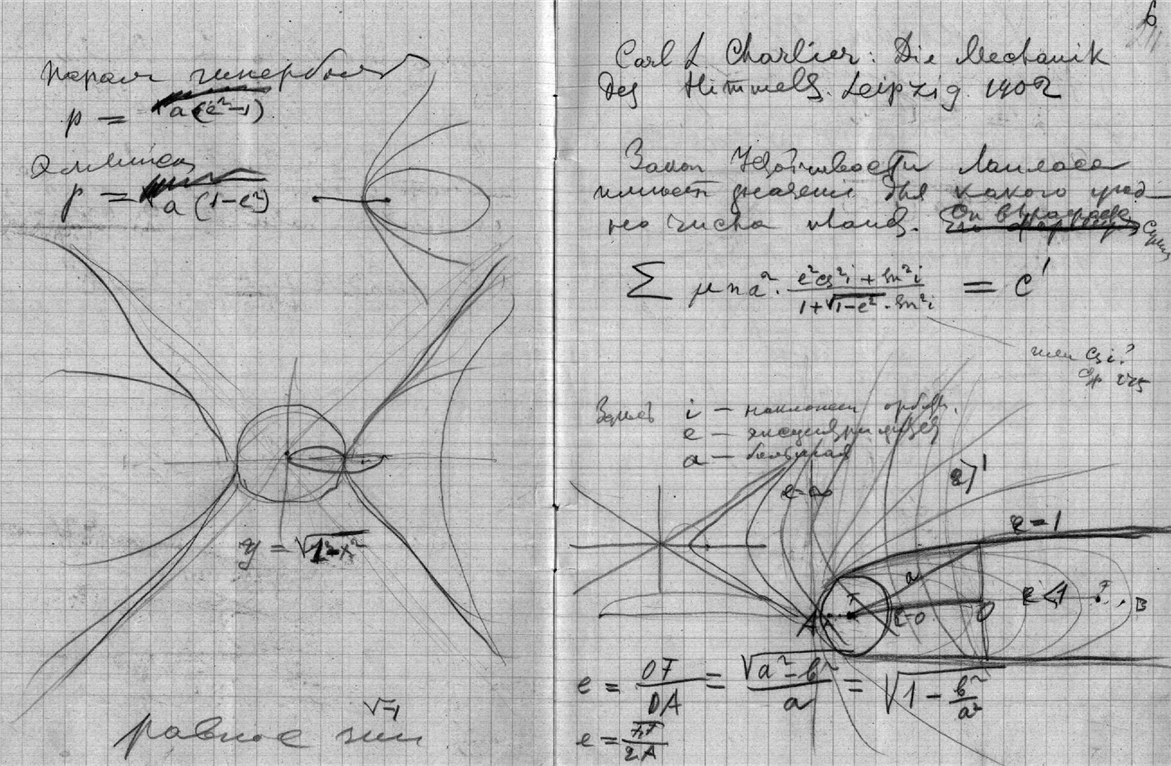 парам гиперболы
p = a(e²-1)
Эллипса
p = a(1-e²)
y = √1²-x²
√-1
равное
6
Carl L Charlier: Die Mechanik
des Himmels. Leipzig. 1902
Закон Устойчивости Лапласа
имеет значение для какого угод-
но числа планет.
Σ μna². e²cs²i + sn²i / 1+√1-e² · sn²i = c'
или cs i?
стр 275
Здесь i — наклонен орбиты,
e — эксцентриситет
a — большая
e=∞
e>1
e=1
a
F
e=0
O
e<1
B
A
e = OF / OA = √a²-b² / a = √1 - b²/a²
e = / 2A